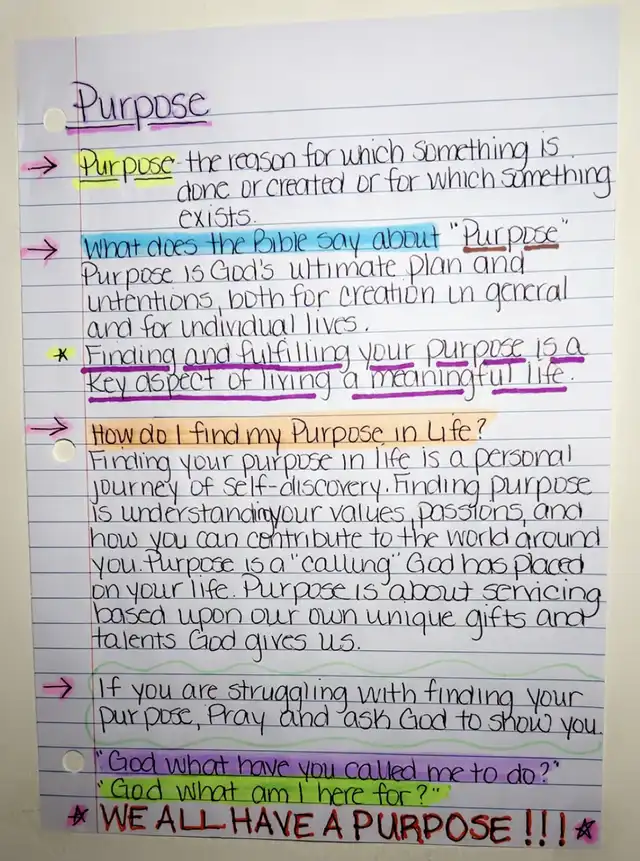 Purpose
→ Purpose - the reason for which something is
done or created or for which something
exists.
→ What does the Bible say about "Purpose"
Purpose is God's ultimate plan and
intentions, both for creation in general
and for individual lives.
* Finding and fulfilling your purpose is a
key aspect of living a meaningful life.
→ How do I find my Purpose in Life?
Finding your purpose in life is a personal
journey of self-discovery. Finding purpose
is understanding your values, passions, and
how you can contribute to the world around
you. Purpose is a "calling" God has placed
on your life. Purpose is about servicing
based upon our own unique gifts and
talents God gives us.
→ If you are struggling with finding your
purpose, Pray and ask God to show you.
"God what have you called me to do?"
"God what am I here for?"
* WE ALL HAVE A PURPOSE!!! *